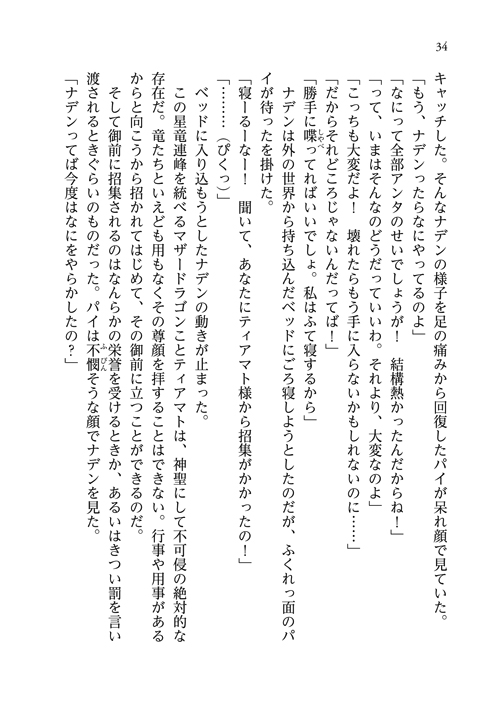 34
キャッチした。そんなナデンの様子を足の痛みから回復したパイが呆れ顔で見ていた。
「もう、ナデンったらなにやってるのよ」
「なにって全部アンタのせいでしょうが！　結構熱かったんだからね！」
「って、いまはそんなのどうだっていいわ。それより、大変なのよ」
「こっちも大変だよ！　壊れたらもう手に入らないかもしれないのに……」
「だからそれどころじゃないんだってば！」
「勝手に喋ってればいいでしょ。私はふて寝するから」
ナデンは外の世界から持ち込んだベッドにごろ寝しようとしたのだが、ふくれっ面のパ
イが待ったを掛けた。
「寝ーるーなー！　聞いて、あなたにティアマト様から招集がかかったの！」
「………（ぴくっ）」
ベッドに入り込もうとしたナデンの動きが止まった。
この星竜連峰を統べるマザードラゴンことティアマトは、神聖にして不可侵の絶対的な
存在だ。竜たちといえども用もなくその尊顔を拝することはできない。行事や用事がある
からと向こうから招かれてはじめて、その御前に立つことができるのだ。
そして御前に招集されるのはなんらかの栄誉を受けるときか、あるいはきつい罰を言い
渡されるときぐらいのものだった。パイは不憫そうな顔でナデンを見た。
「ナデンってば今度はなにをやらかしたの？」